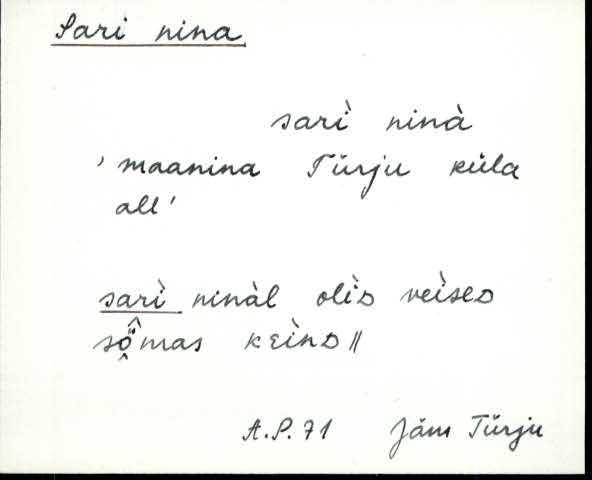 Sari nina
sarì ninà
'maanina Türju küla
all'
sarì ninàl olìᴅ veìseᴅ
sö̭̂mas kεìnᴅ ||
A.P. 71 Jäm Türju